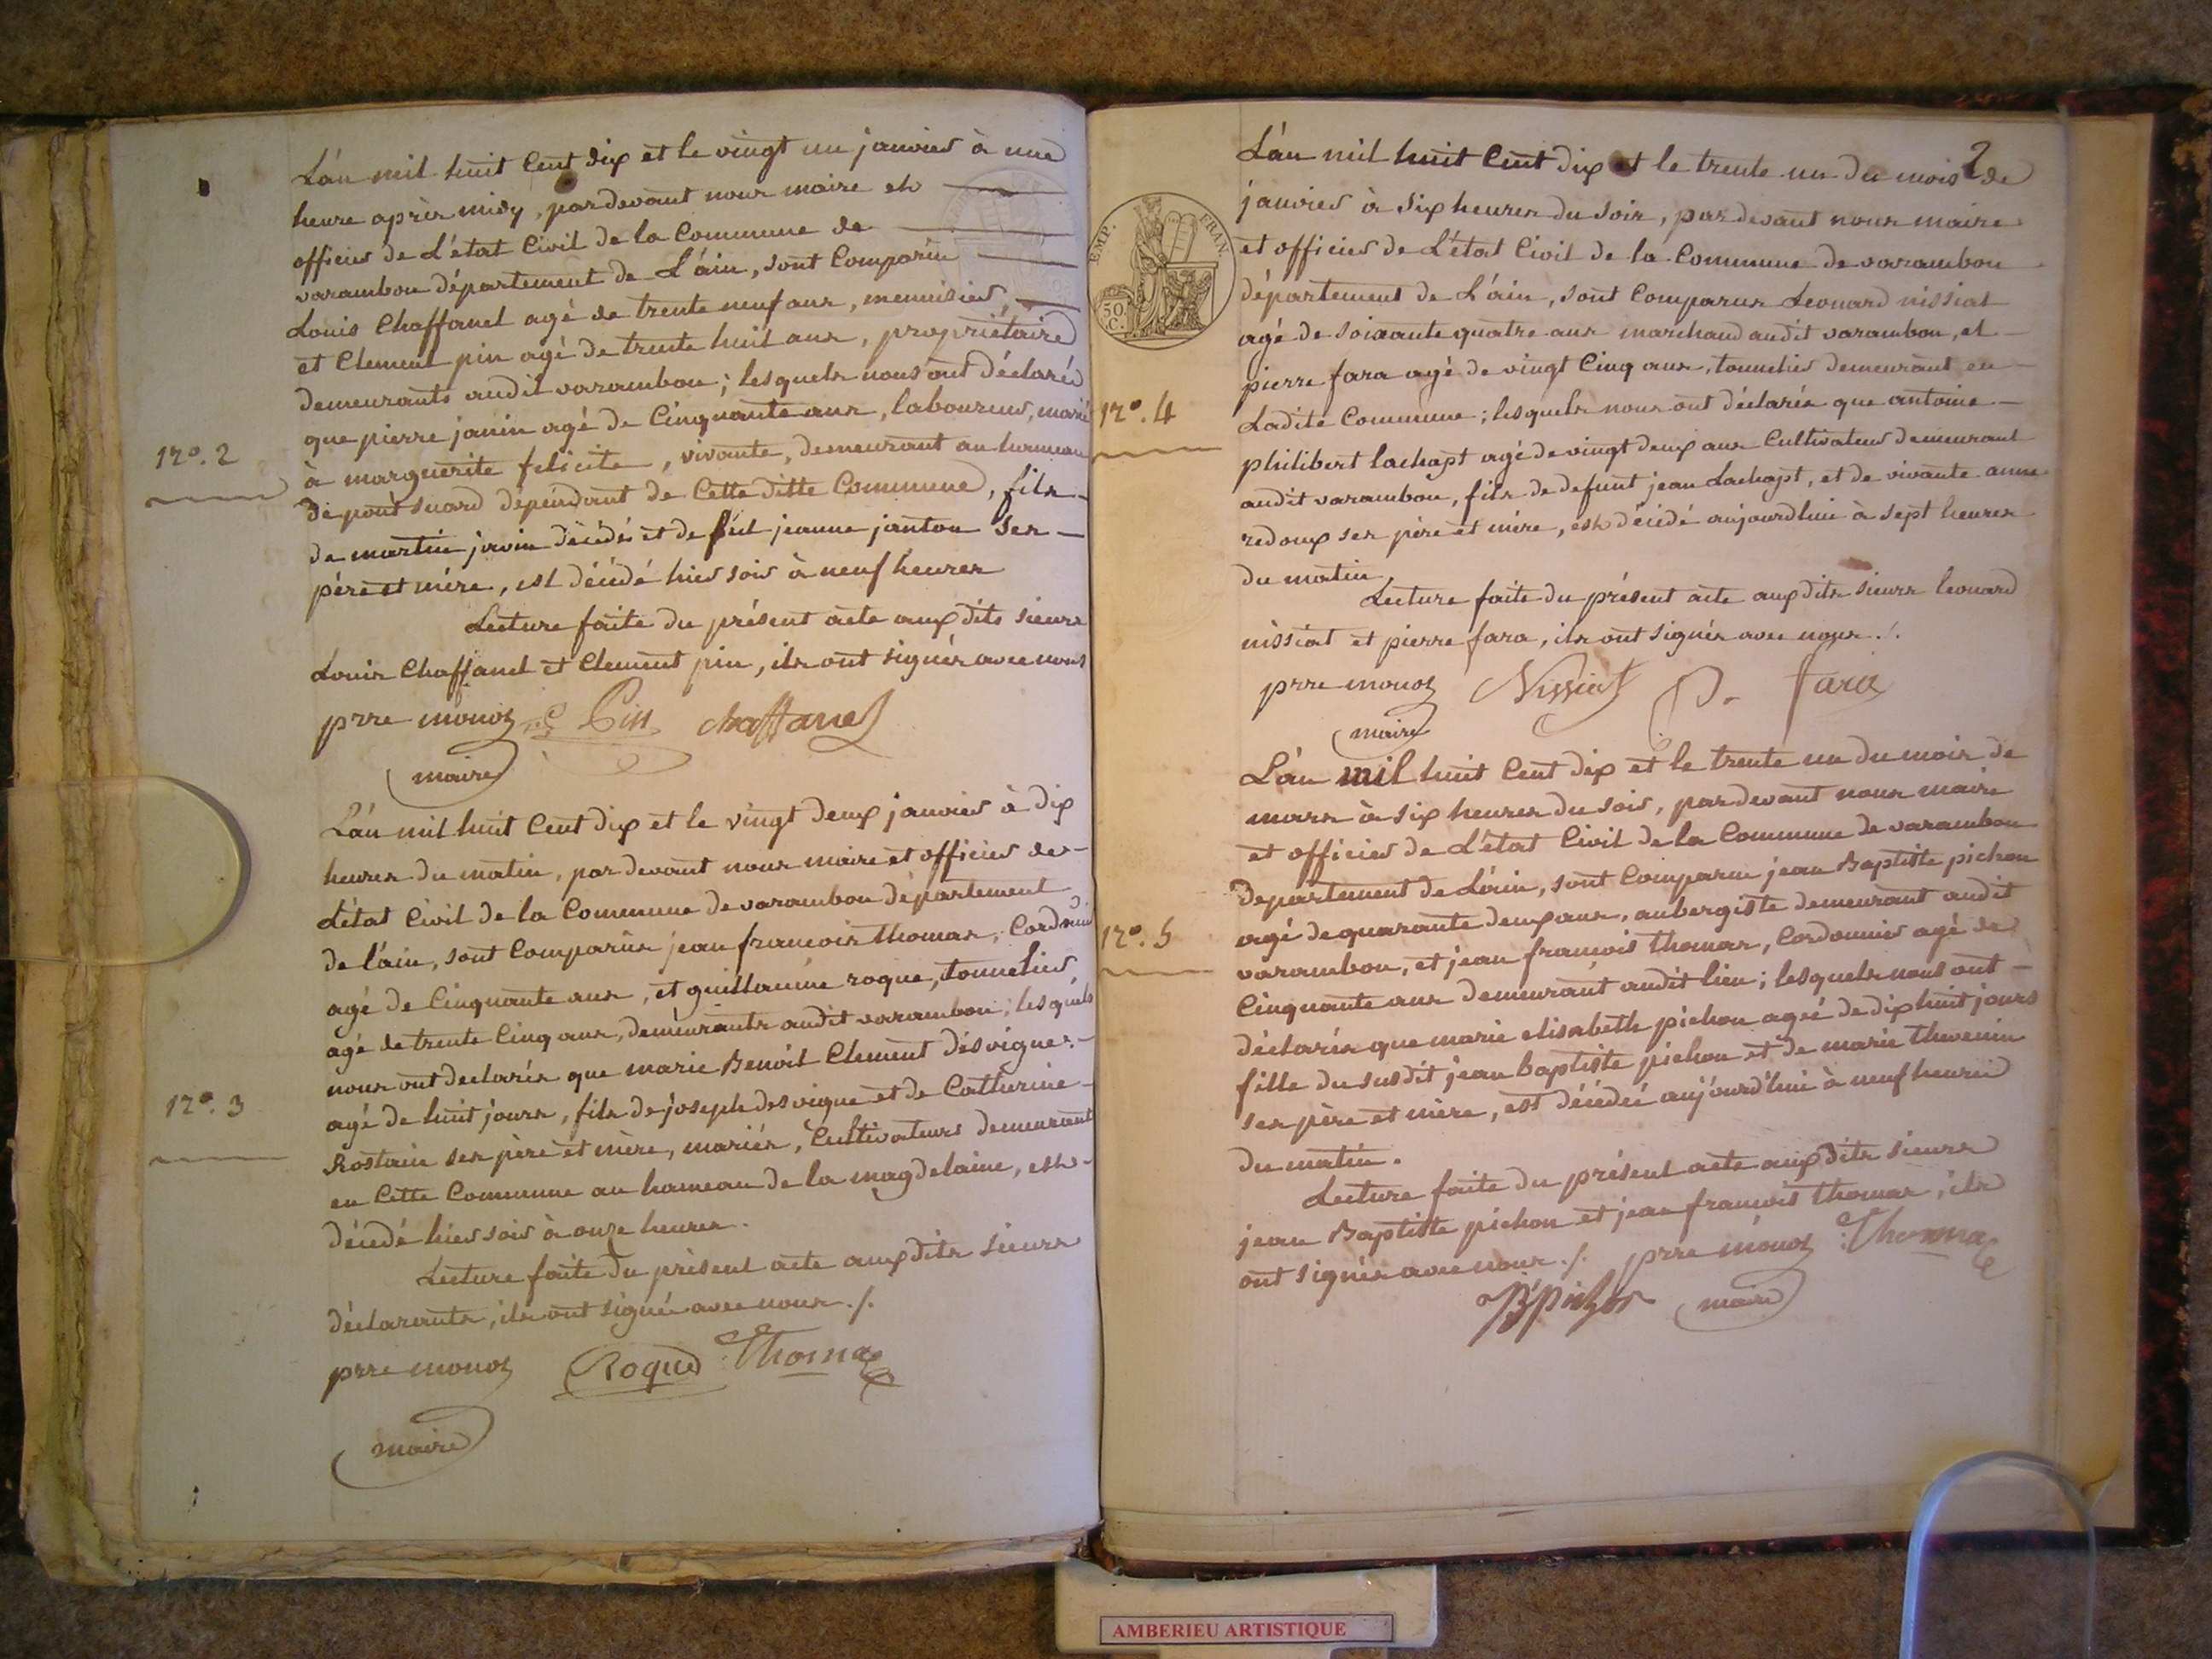 L'án mil huit Cent dix et le vingt un janvier à une
heure après midy, pardevant nous maire et
officier de L'état Civil de la Commune de
varambon département de L'ain, sont Comparus
Louis Chaffanel agé de trente neuf ans, menuisier,
et Clement pin agé de trente huit ans, propriétaire
demeurants audit varambon; lesquels nous ont déclarés
que pierre janin agé de Cinquante ans, laboureur, marié
N°. 2
à marguerite felicite, vivante, demeurant au hameau
de pont suard dépendant de Cette ditte Commune, fils
de martin janin décédé et de feu jeanne janton ses
père et mère, est décédé hier soir à neuf heures
Lecture faite du présent acte aux dits sieurs
Louis Chaffanel et Clement pin, ils ont signés avec nous
prre monoz C Pin chaffanel
maire
L'án mil huit Cent dix et le vingt deux janvier à dix
heures du matin, par devant nous maire et officier de
L'état Civil de la Commune de varambon département
de l'ain, sont Comparus jean francois thomas, Cordonier
agé de Cinquante ans, et guillaume roque, tonnelier,
agé de trente Cinq ans, demeurants audit varambon; lesquels
nous ont declarés que marie Benoit Clement désvignes
N°. 3
agé de huit jours, fils de joseph desvigne et de Catherine
Rostain ses père et mère, mariés, Cultivateurs demeurant
en Cette Commune au hameau de la magdelaine, est
décédé hier soir à onze heures.
Lecture faite du présent acte aux dits sieurs
déclarants, ils ont signé avec nous ./.
prre monoz Roque Thomas
maire
2
L'án mil huit Cent dix et le trente un du mois de
janvier à six heures du soir, par devant nous maire
et officier de L'état Civil de la Commune de varambon
département de L'ain, sont Comparus Leonard nissiat
EMP. FRAN.
50. C.
agé de soixante quatre ans marchand audit varambon, et
pierre fara agé de vingt Cinq ans, tonnelier demeurant en
N°. 4
Ladite Commune; lesquels nous ont déclarés que antoine
philibert lachapt agé de vingt deux ans Cultivateur demeurant
audit varambon, fils de defunt jean Lachapt, et de vivante anne
redoux ses père et mère, est décédé aujourdhui à sept heures
du matin,
Lecture faite du présent acte aux dits sieurs leonard
nissiat et pierre fara, ils ont signés avec nous ./.
prre monoz Nissiat P. fara
maire
L'án mil huit Cent dix et le trente un du mois de
mars à six heures du soir, par devant nous maire
et officier de L'état Civil de la Commune de varambon
departement de L'ain, sont Comparus jean Baptiste pichon
agé de quarante deux ans, aubergiste demeurant audit
N°. 5
varambon, et jean francois thomas, Cordonnier agé de
Cinquante ans demeurant audit lieu; lesquels nous ont
déclarés que marie elisabeth pichon agée de dix huit jours
fille du susdit jean baptiste pichon et de marie thevenin
ses père et mère, est décédée aujourd'hui à neuf heures
du matin.
Lecture faite du présent acte aux dits sieurs
jean Baptiste pichon et jean francois thomas, ils
ont signés avec nous ./. prre monoz Thomas
JB pichon maire
AMBERIEU ARTISTIQUE